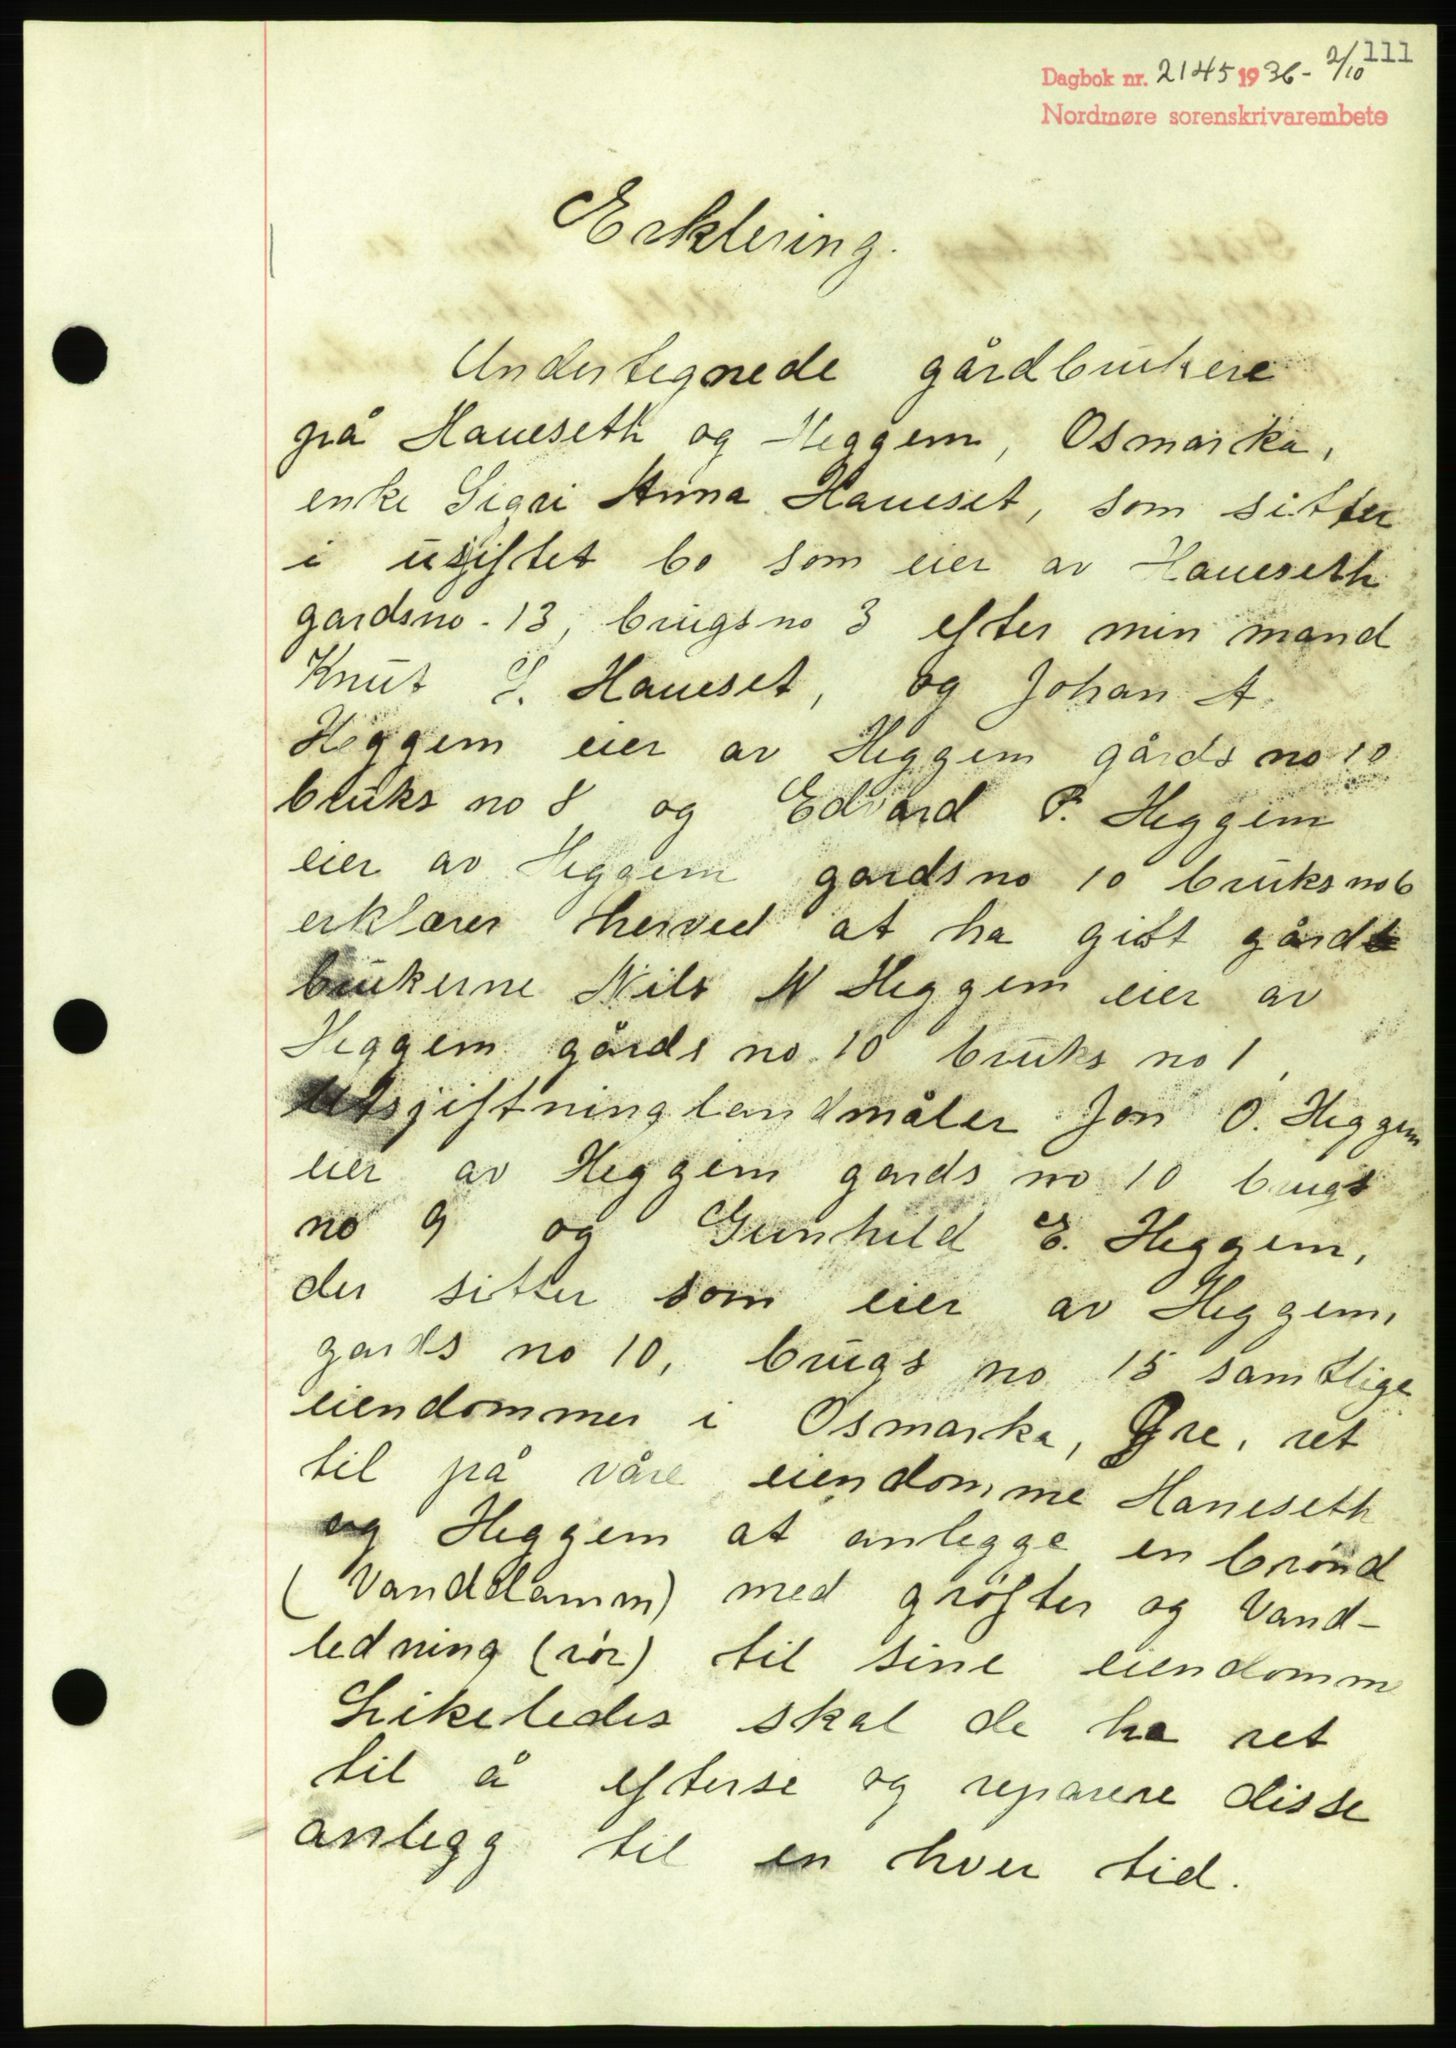 111
Dagbok nr. 2145 1936 - 2/10
Nordmøre sorenskrivarembete
Erklering.
Undertegnede gårdbrukere
på Haueseth og Heggem, Osmarka,
enke Sigri Anna Haueset, som sitter
i usjiftet bo som eier av Haueseth
gardsno. 13, brugsno 3 efter min mand
Knut S. Haueset, og Johan A.
Heggem eier av Heggem gårds no 10
bruks no 8 og Edvard P. Heggem
eier av Heggem gardsno 10 bruksno 6
erklærer herved at ha gitt gårds
brukerne Nils N Heggem eier av
Heggem gårds no 10 bruks no 1,
Utsjiftninglandmåler Jon O. Heggem
eier av Heggem gards no 10 brugs
no 9 og Gunhild E. Heggem,
der sitter som eier av Heggem,
gards no 10, brugs no 15 samtlige
eiendommer i Osmarka, Øre, ret
til på våre eiendomme Haueseth
og Heggem at anlegge en brønd
(Vanddamm) med grøfter og Vand-
ledning (rør) til sine eiendomme
Likeledes skal de ha ret
til å efterse og reparere disse
anlegg til en hver tid.